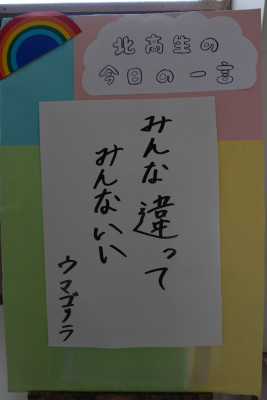 北高生の
今日の一言
みんな違って
みんないい
ウマゴリラ